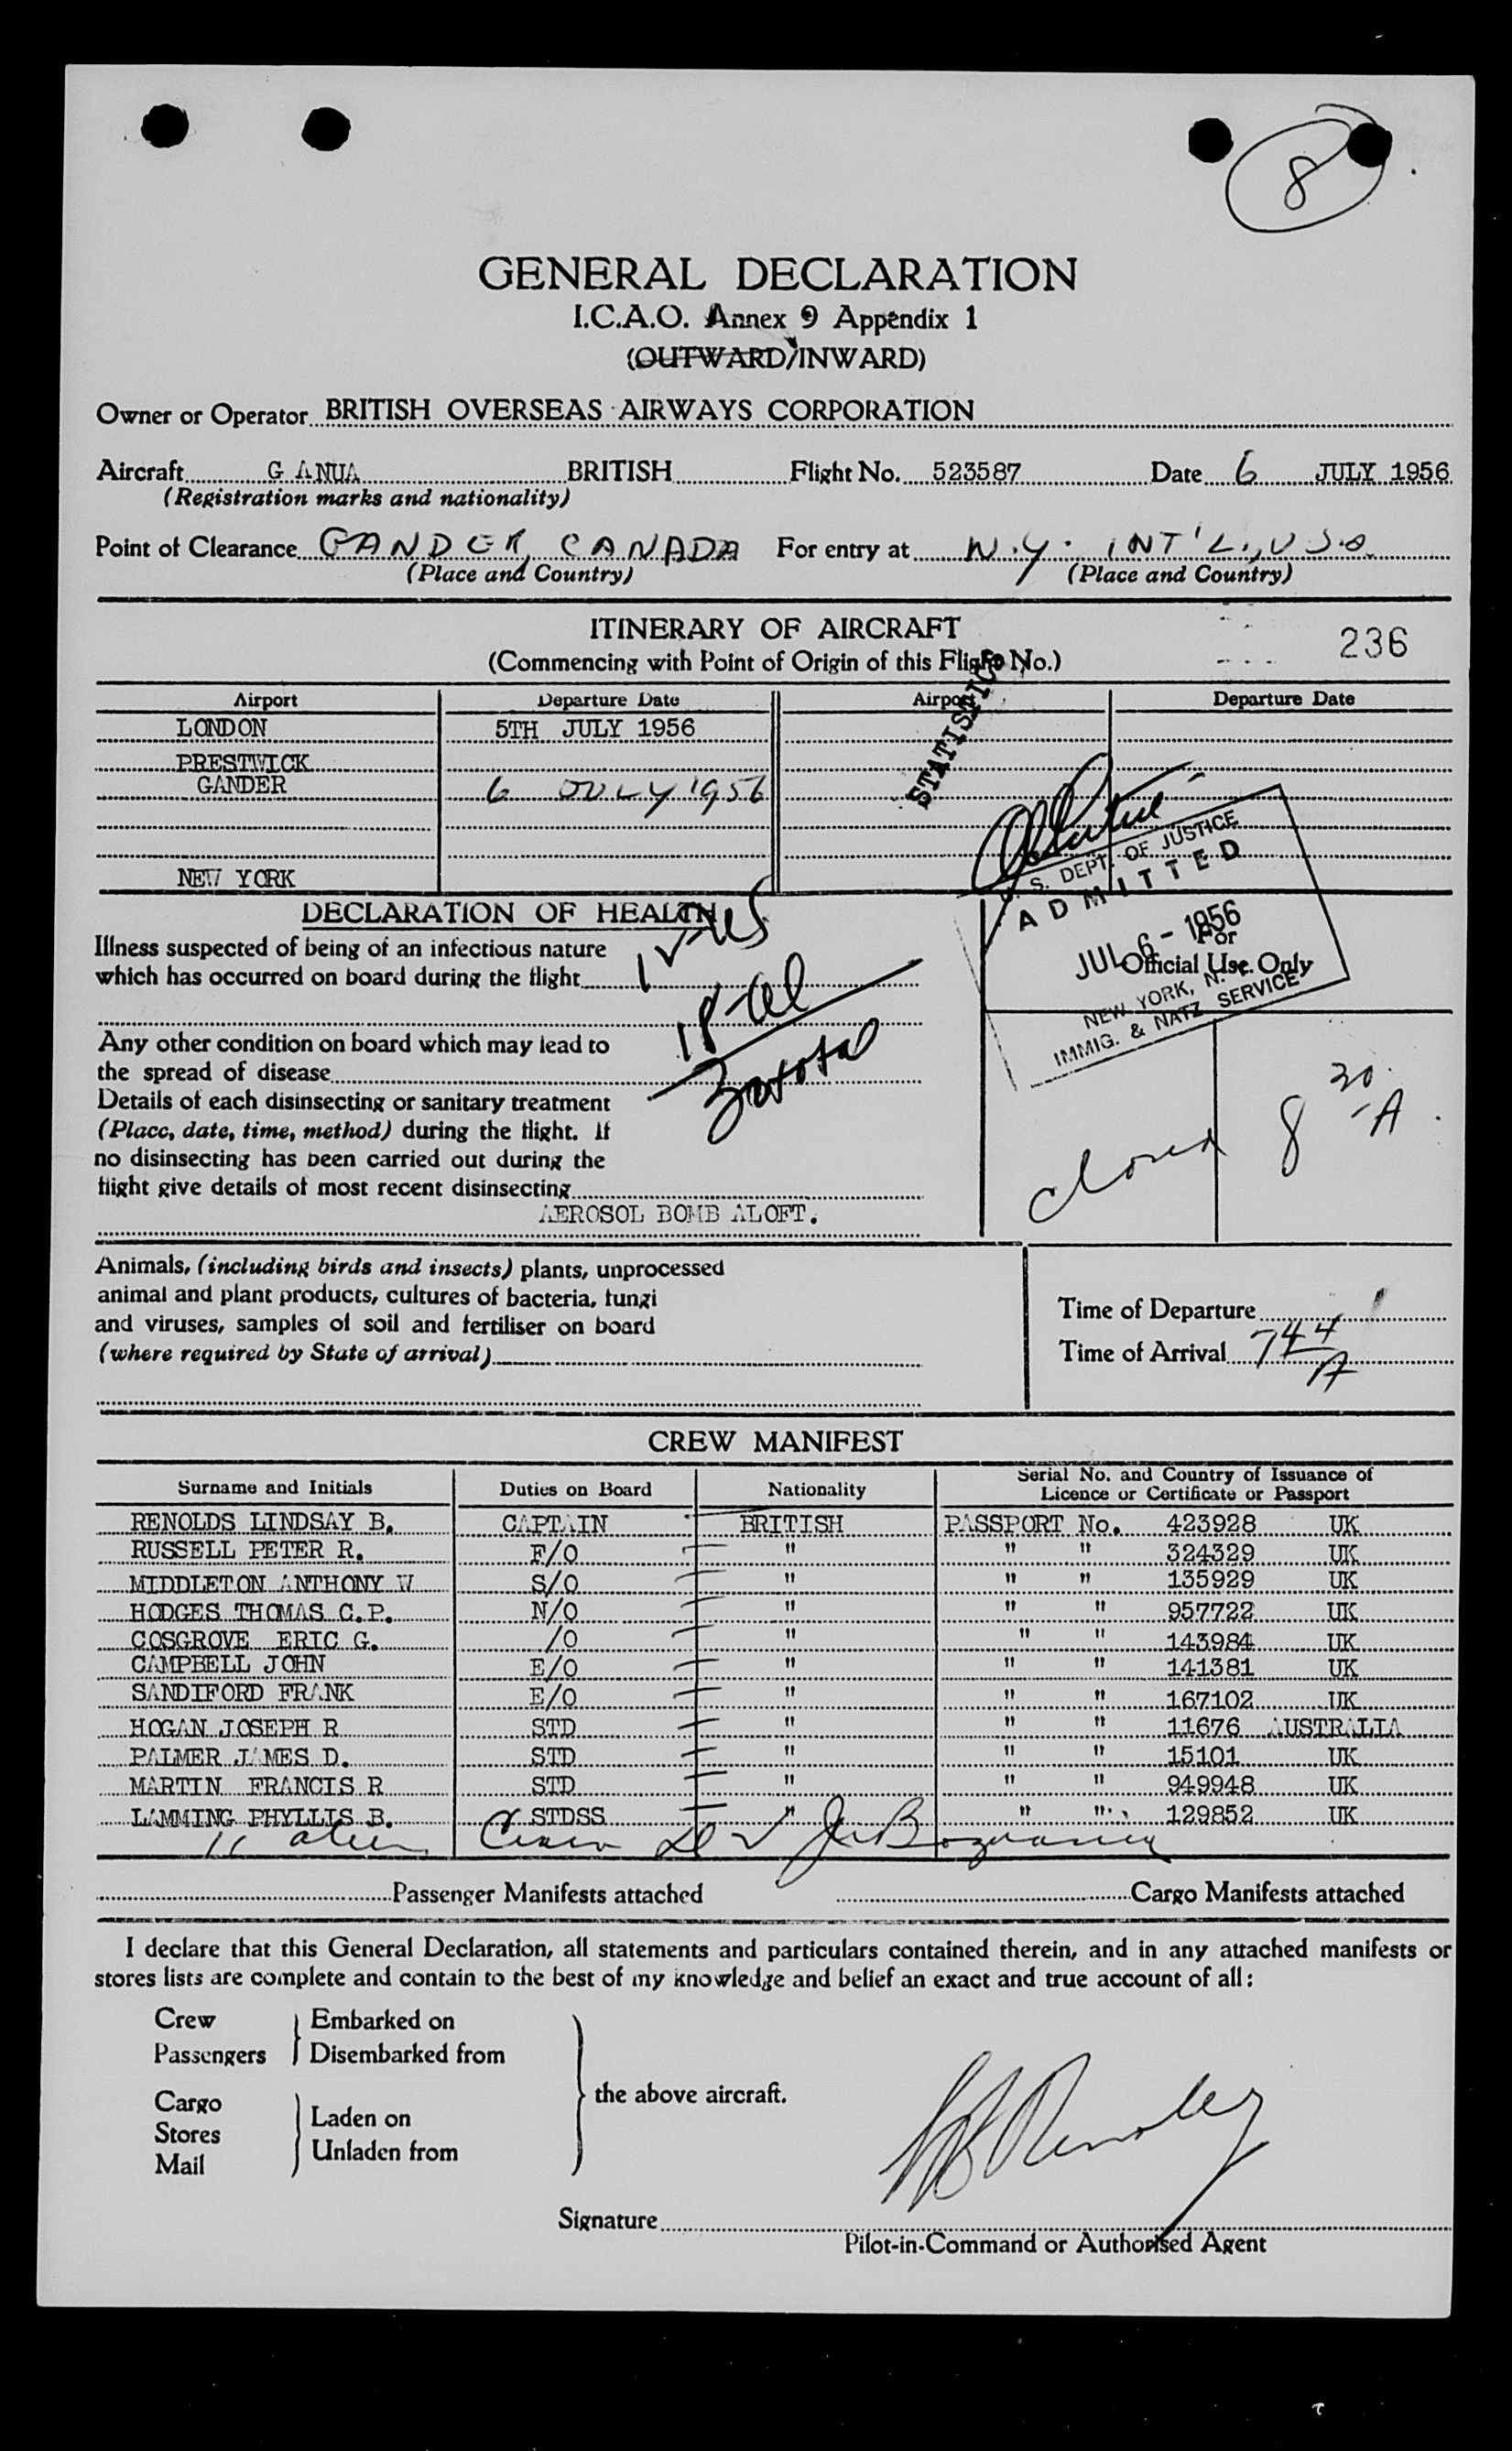 8
GENERAL DECLARATION
I.C.A.O. Annex 9 Appendix 1
(OUTWARD/INWARD)
Owner or Operator BRITISH OVERSEAS AIRWAYS CORPORATION
Aircraft G ANUA BRITISH Flight No. 523587 Date 6 JULY 1956
(Registration marks and nationality)
Point of Clearance GANDER, CANADA For entry at N.Y. INT'L., U.S.A.
(Place and Country) (Place and Country)
ITINERARY OF AIRCRAFT
236
(Commencing with Point of Origin of this Flight No.)
STATISTICS
Airport Departure Date Airport Departure Date
LONDON 5TH JULY 1956
PRESTWICK
GANDER 6 JULY 1956
NEW YORK
U.S. DEPT. OF JUSTICE
ADMITTED
JUL 6 - 1956
NEW YORK, N.Y.
IMMIG. & NATZ. SERVICE
DECLARATION OF HEALTH
For
Official Use Only
Illness suspected of being of an infectious nature
which has occurred on board during the flight
Any other condition on board which may lead to
the spread of disease
Details of each disinsecting or sanitary treatment
(Place, date, time, method) during the flight. If
no disinsecting has been carried out during the
flight give details of most recent disinsecting
AEROSOL BOMB ALOFT.
total
closed 8 30 A
Animals, (including birds and insects) plants, unprocessed
animal and plant products, cultures of bacteria, fungi
and viruses, samples of soil and fertiliser on board
(where required by State of arrival)
Time of Departure
Time of Arrival 744 A
CREW MANIFEST
Surname and Initials Duties on Board Nationality Serial No. and Country of Issuance of
Licence or Certificate or Passport
RENOLDS LINDSAY B. CAPTAIN BRITISH PASSPORT No. 423928 UK
RUSSELL PETER R. F/O " " " 324329 UK
MIDDLETON ANTHONY W S/O " " " 135929 UK
HODGES THOMAS C.P. N/O " " " 957722 UK
COSGROVE ERIC G. /O " " " 143984 UK
CAMPBELL JOHN E/O " " " 141381 UK
SANDIFORD FRANK E/O " " " 167102 UK
HOGAN JOSEPH R STD " " " 11676 AUSTRALIA
PALMER JAMES D. STD " " " 15101 UK
MARTIN FRANCIS R STD " " " 949948 UK
LAMMING PHYLLIS B. STDSS " " " 129852 UK
11 alien
Passenger Manifests attached Cargo Manifests attached
I declare that this General Declaration, all statements and particulars contained therein, and in any attached manifests or
stores lists are complete and contain to the best of my knowledge and belief an exact and true account of all:
Crew Embarked on
Passengers Disembarked from
the above aircraft.
Cargo Laden on
Stores
Mail Unladen from
Signature
Pilot-in-Command or Authorised Agent